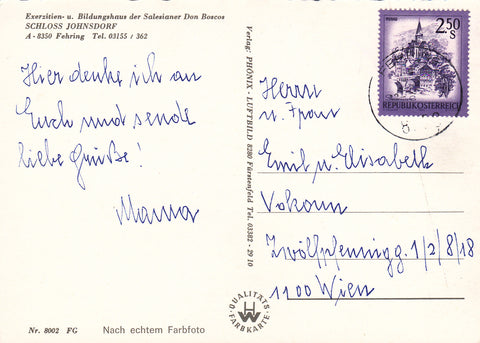 Exerzitien- u. Bildungshaus der Salesianer Don Boscos
SCHLOSS JOHNSDORF
A - 8350 Fehring Tel. 03155 / 362
Hier denke ich an
Euch und sende
liebe Grüße!
Mama
Nr. 8002 FG Nach echtem Farbfoto
Verlag: PHÖNIX - LUFTBILD 8280 Fürstenfeld Tel. 03382 - 29 10
QUALITÄTS
FARBKARTE
2.50
S
REPUBLIK ÖSTERREICH
Herrn
u. Frau
Emil u. Elisabeth
Vokoun
Zwölfpfennigg. 1/2/8/18
1100 Wien